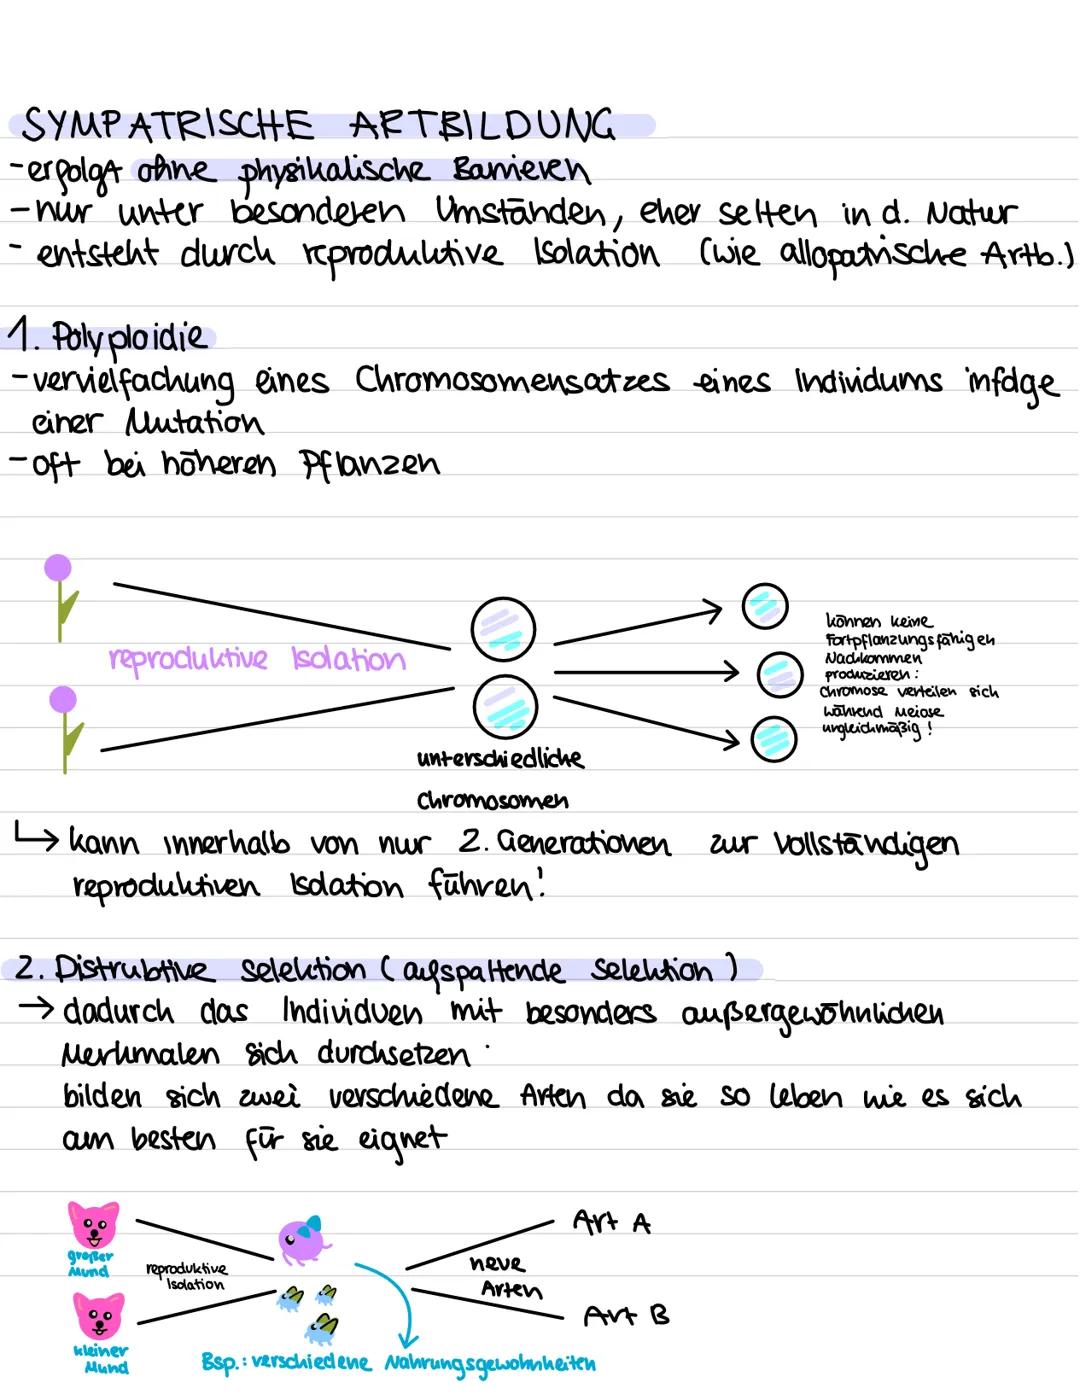 SYMPATRISCHE ARTBILDUNG
-erfolgt ohne physikalische Barrieren
-nur unter besonderen Umständen, eher selten in d. Natur
- entsteht durch reproduktive Isolation (wie allopatrische Artb.)
1. Polyploidie
-vervielfachung eines Chromosomensatzes eines Individums infolge
einer Mutation
-oft bei höheren Pflanzen
reproduktive Isolation
unterschiedliche
Chromosomen
können keine
Fortpflanzungsfähigen
Nachkommen
produzieren:
Chromose verteilen sich
während Meiose
ungleichmäßig!
↳ kann innerhalb von nur 2. Generationen zur vollständigen
reproduktiven Isolation führen!
2. Distrubtive Selektion (aufspaltende Selektion)
→ dadurch das Individuen mit besonders außergewöhnlichen
Merkmalen sich durchsetzen
bilden sich zwei verschiedene Arten da sie so leben wie es sich
am besten für sie eignet
großer
Mund
reproduktive
Isolation
kleiner
Mund
neue
Arten
Art A
Art B
Bsp.: verschiedene Nahrungsgewohnheiten